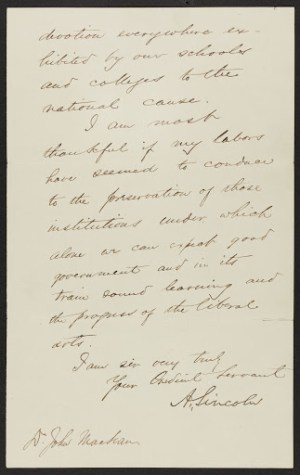 devotion everywhere ex-
hibited by our schools
and colleges to the
national cause.
I am most
thankful if my labors
have seemed to conduce
to the preservation of those
institutions under which
alone we can expect good
government and in its
train sound learning and
the progress of the liberal
arts.
I am sir very truly
Your Obedient Servant
A. Lincoln
Dr John Maclean